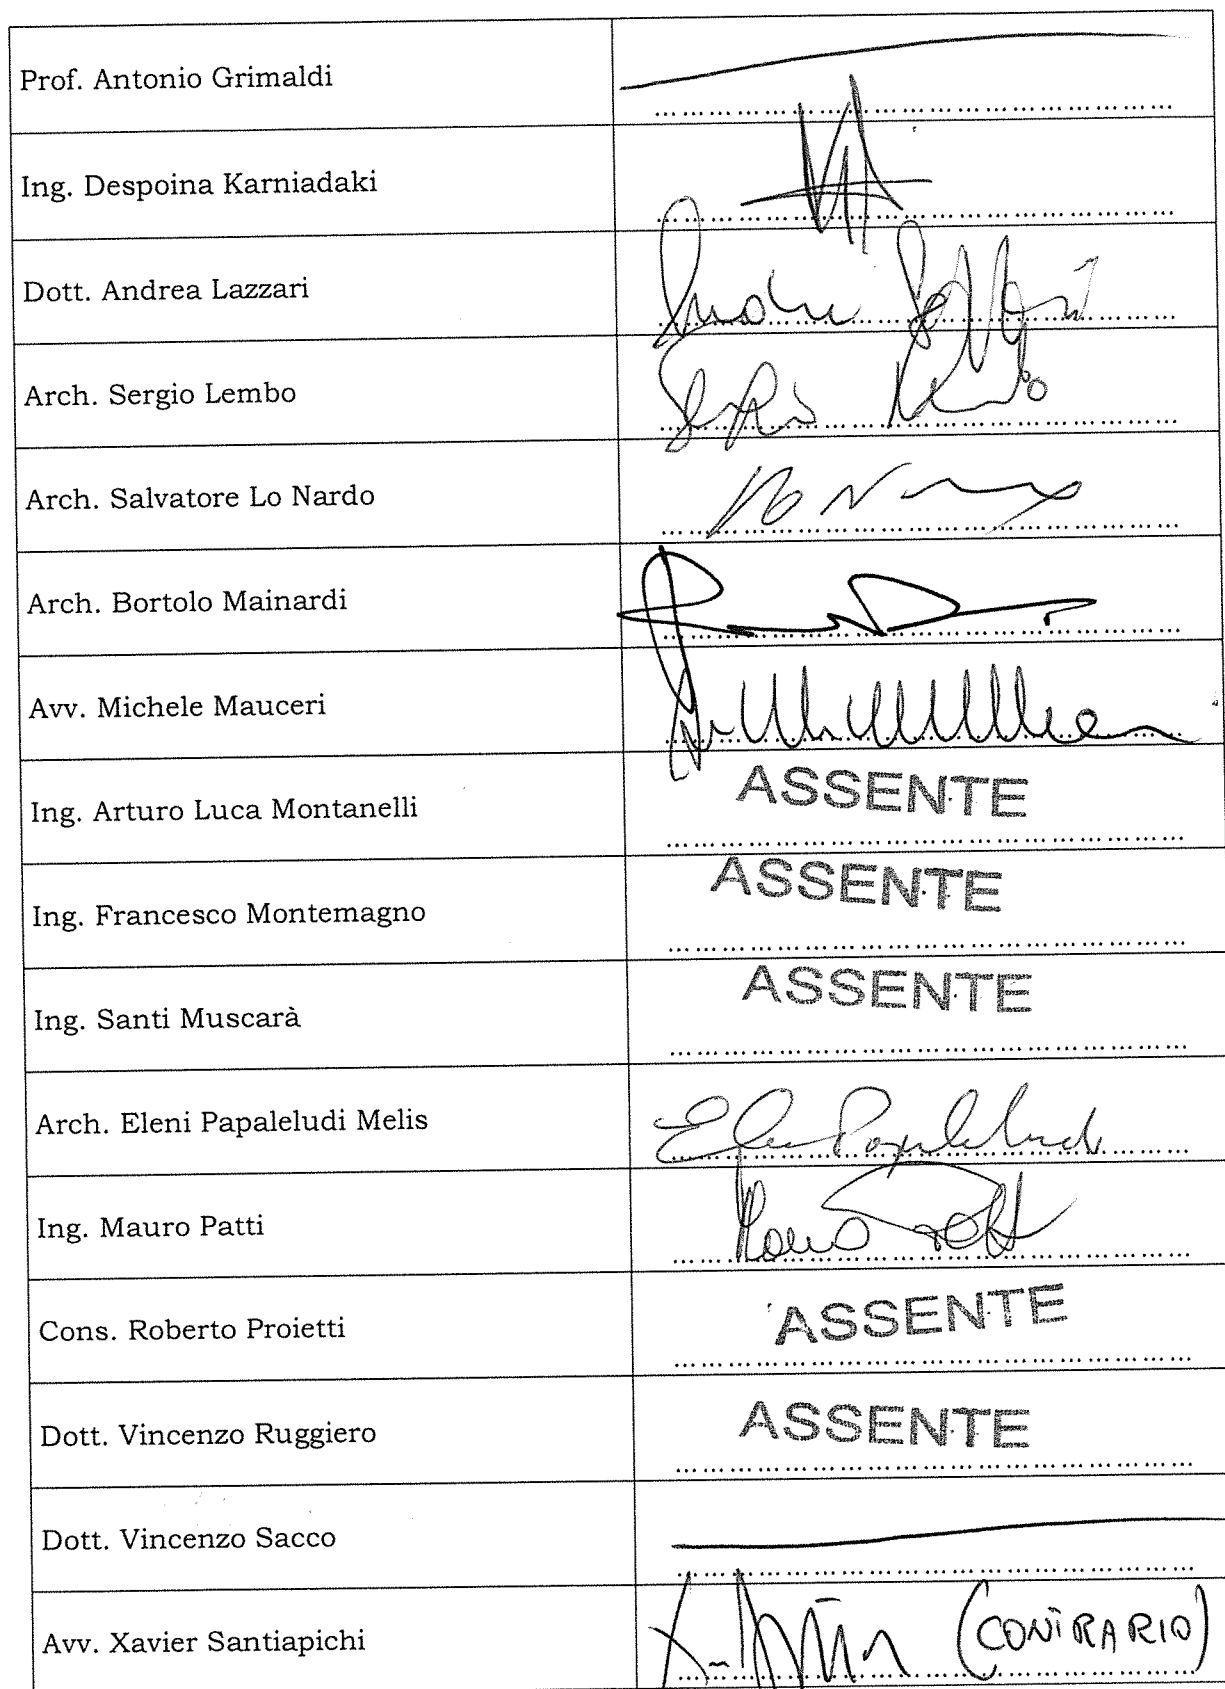 Prof. Antonio Grimaldi
Ing. Despoina Karniadaki
Dott. Andrea Lazzari
Arch. Sergio Lembo
Arch. Salvatore Lo Nardo
Arch. Bortolo Mainardi
Avv. Michele Mauceri
Ing. Arturo Luca Montanelli ASSENTE
Ing. Francesco Montemagno ASSENTE
Ing. Santi Muscarà ASSENTE
Arch. Eleni Papaleludi Melis
Ing. Mauro Patti
Cons. Roberto Proietti ASSENTE
Dott. Vincenzo Ruggiero ASSENTE
Dott. Vincenzo Sacco
Avv. Xavier Santiapichi (CONTRARIO)